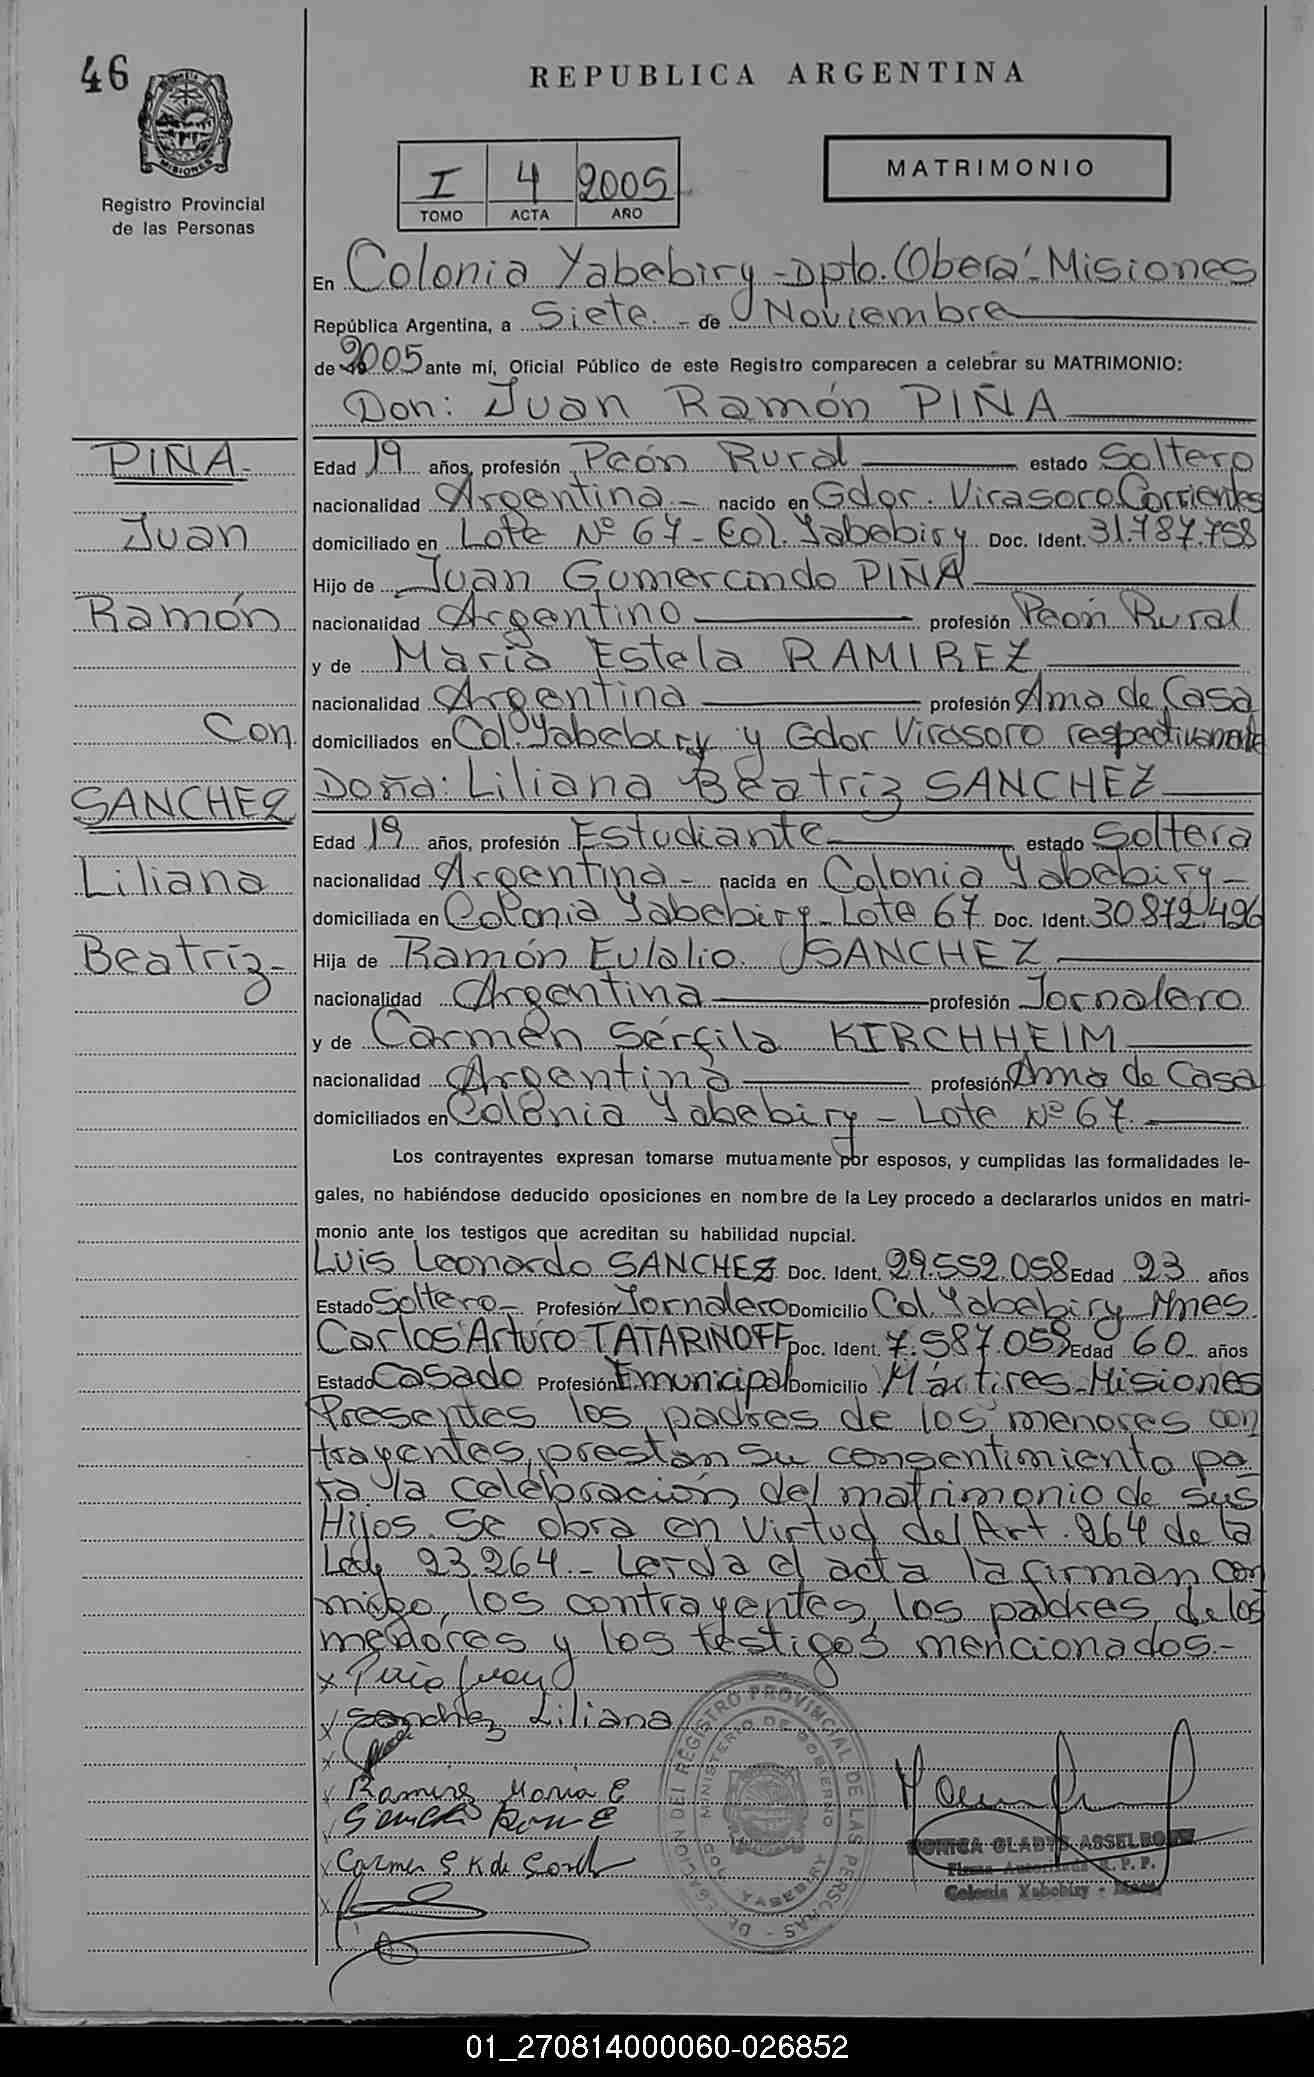 46
REPUBLICA ARGENTINA
MISIONES
Registro Provincial
de las Personas
I 4 2005
TOMO ACTA AÑO
MATRIMONIO
En Colonia Yabebiry - Dpto. Oberá - Misiones
República Argentina, a Siete. - de Noviembre
de 2005 ante mí, Oficial Público de este Registro comparecen a celebrar su MATRIMONIO:
Don: Juan Ramón PIÑA
PIÑA -
Juan
Ramón
Con
SANCHEZ
Liliana
Beatriz -
Edad 19 años, profesión Peón Rural estado Soltero
nacionalidad Argentina - nacido en Gdor. Virasoro Corrientes
domiciliado en Lote Nº 67 - Col. Yabebiry Doc. Ident. 31.787.758
Hijo de Juan Gumercindo PIÑA
nacionalidad Argentino profesión Peón Rural
y de Maria Estela RAMIREZ
nacionalidad Argentina profesión Ama de Casa
domiciliados en Col. Yabebiry y Gdor Virasoro respectivamente
Doña: Liliana Beatriz SANCHEZ
Edad 19 años, profesión Estudiante estado Soltera
nacionalidad Argentina - nacida en Colonia Yabebiry -
domiciliada en Colonia Yabebiry - Lote 67 Doc. Ident. 30.872.496
Hija de Ramón Eulalio SANCHEZ
nacionalidad Argentina profesión Jornalero
y de Carmen Sérfila KIRCHHEIM
nacionalidad Argentina profesión Ama de Casa
domiciliados en Colonia Yabebiry - Lote Nº 67.
Los contrayentes expresan tomarse mutuamente por esposos, y cumplidas las formalidades le-
gales, no habiéndose deducido oposiciones en nombre de la Ley procedo a declararlos unidos en matri-
monio ante los testigos que acreditan su habilidad nupcial.
Luis Leonardo SANCHEZ Doc. Ident. 29.552.058 Edad 23 años
Estado Soltero - Profesión Jornalero Domicilio Col. Yabebiry Mnes.
Carlos Arturo TATARINOFF Doc. Ident. 7.587.059 Edad 60 años
Estado Casado Profesión E municipal Domicilio Mártires - Misiones
Presentes los padres de los menores con
trayentes, prestan su consentimiento pa
ra la celebración del matrimonio de sus
Hijos. Se obra en Virtud del Art. 264 de la
Ley 23.264. - Leida el acta la firman con
migo, los contrayentes, los padres de los
menores y los testigos mencionados. -
x Piña Juan
x Sanchez Liliana
x
x Ramirez Maria E
x Carmen S. K de
x
DELEGACION DEL REGISTRO PROVINCIAL DE LAS PERSONAS -
MINISTERIO DE GOBIERNO
YABEBIRY
MONICA GLADYS ASSELBORN
Firma Autorizada R. P. P.
Colonia Yabebiry -
01_270814000060-026852